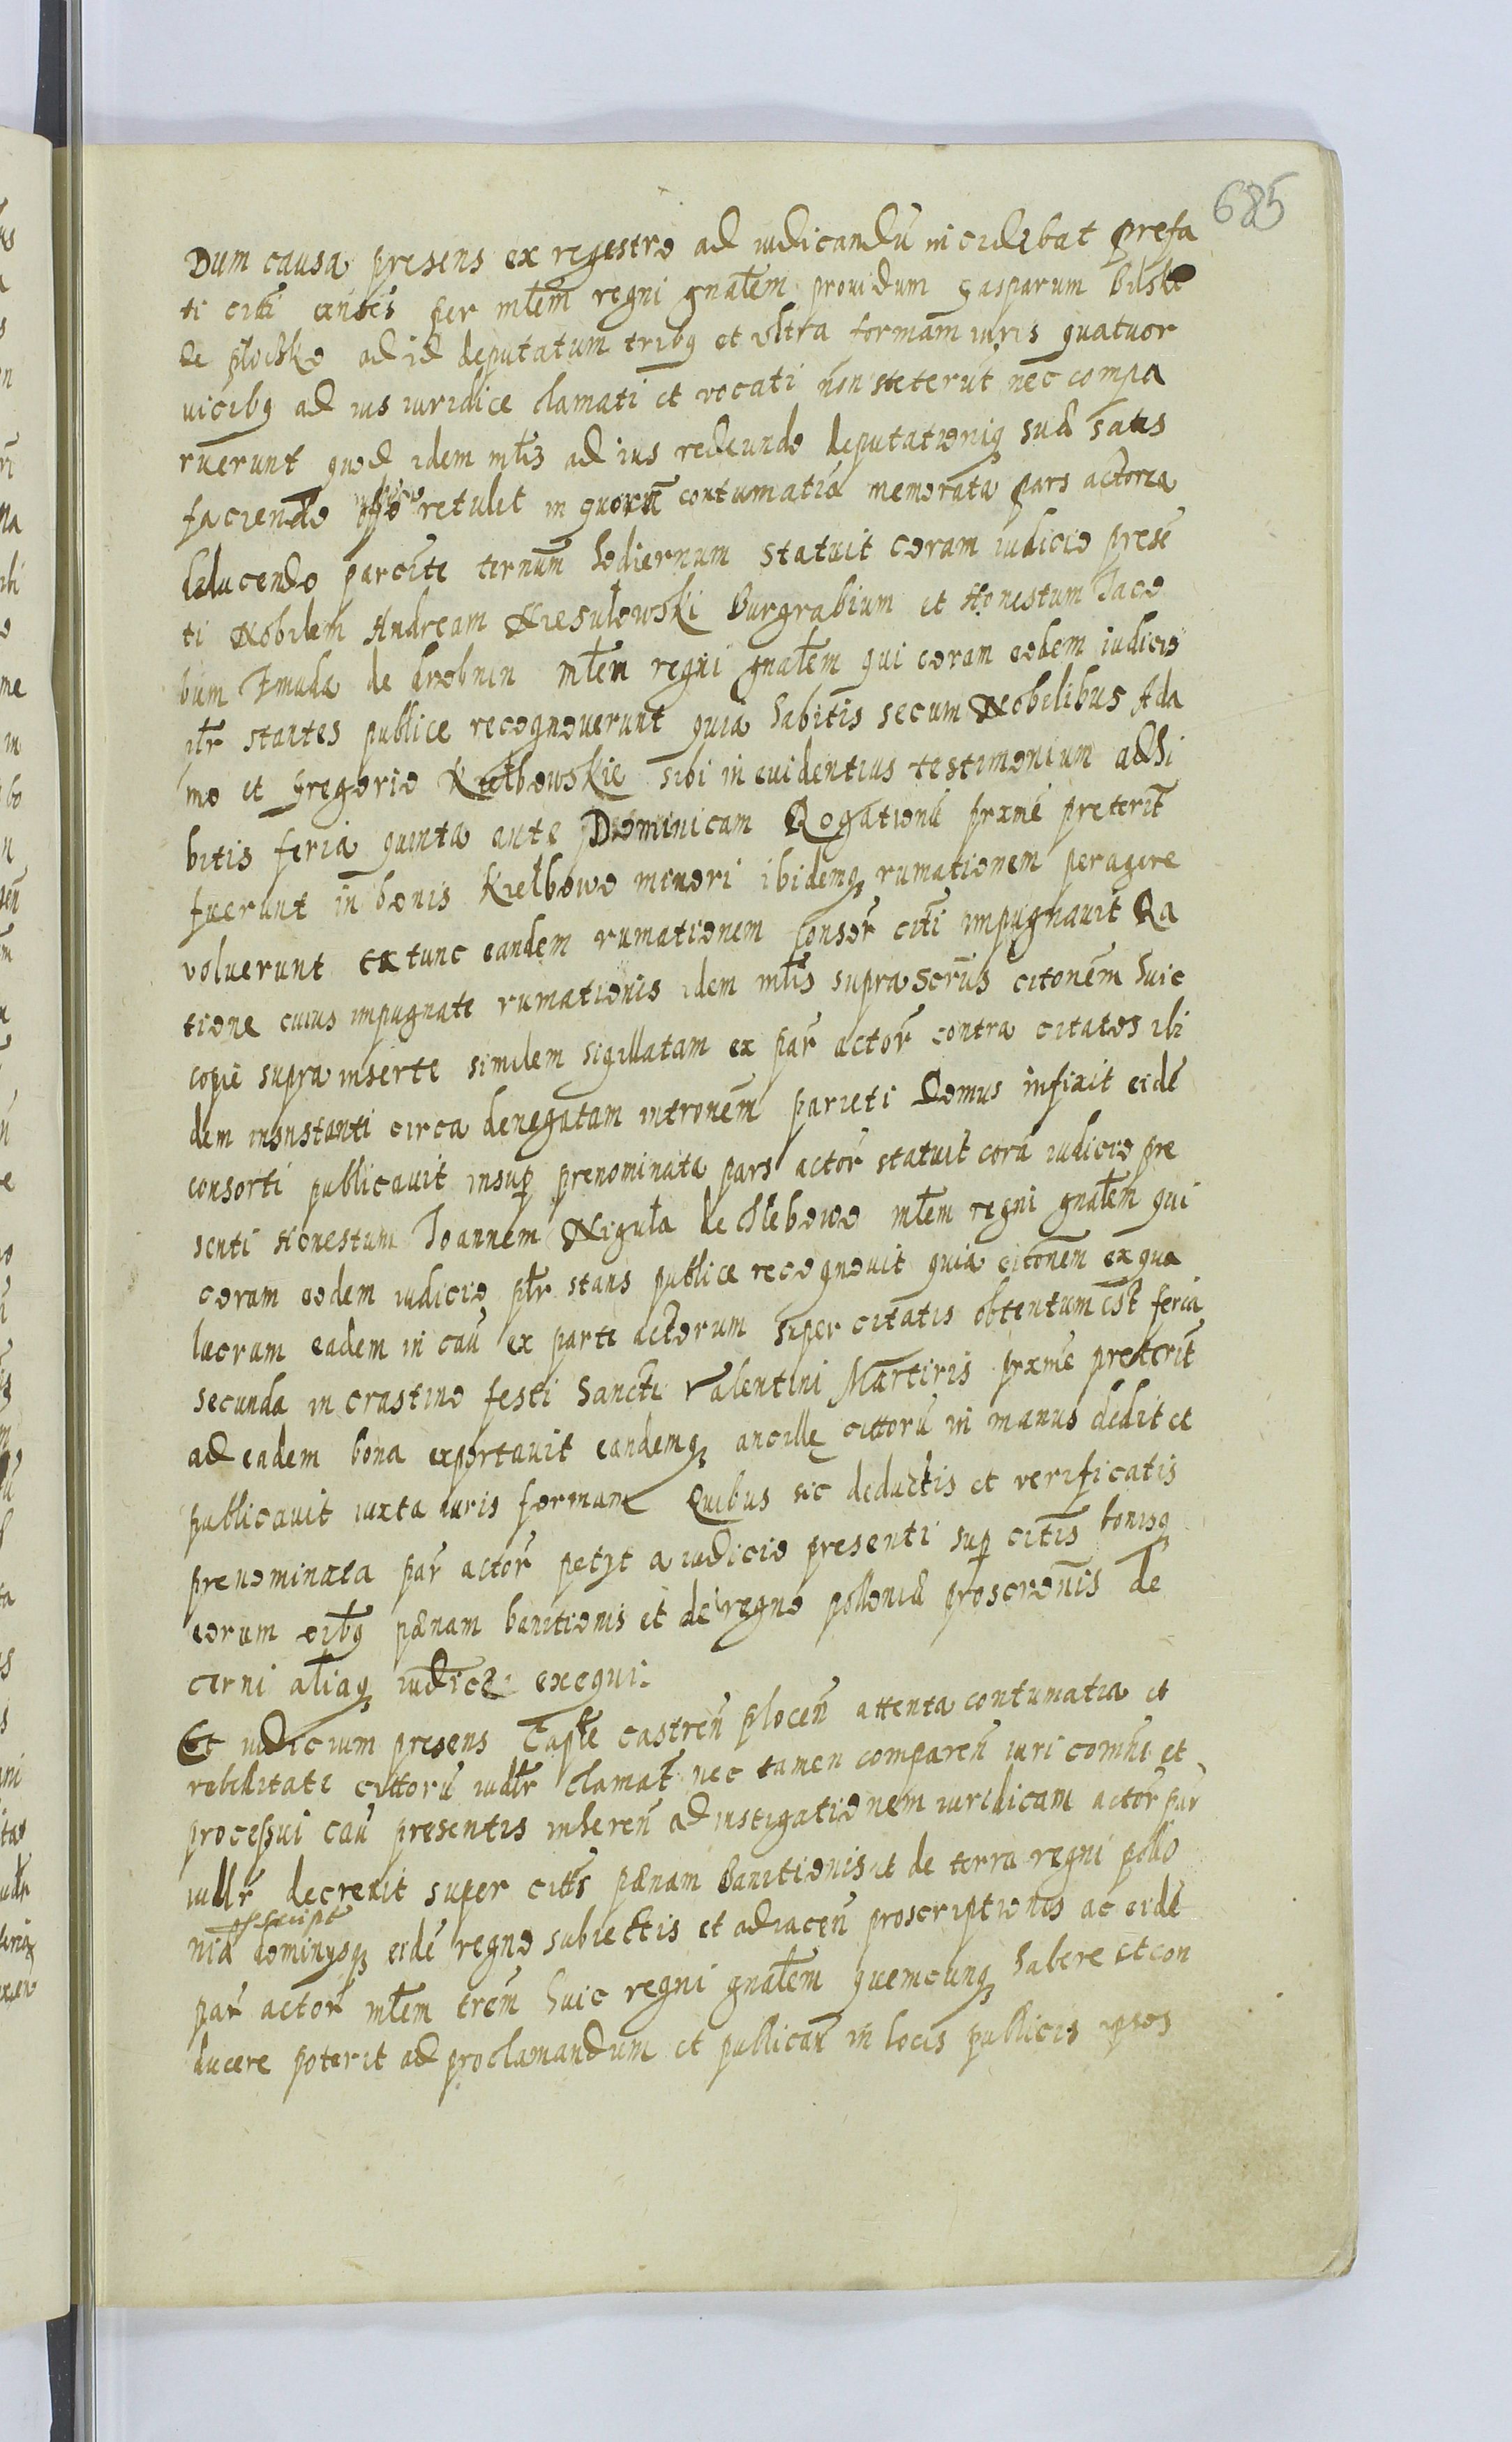 685
Dum causa presens ex regestro ad iudicandũ incidebat prefa
ti citi per mlem regni gnalem prouidum Gasparum Bilsk
de plocsko ad id deputatum tribq et vltra formam iuris quatuor
uicibq ad ius iuridice clamati et vocati non steterũt nec compa
ruerunt quod idem mlis ad ius redeundo deputationiq suæ satis
faciendo retulit in quorũ contumatiã memorata pars actorea
deducendo parcite ternum hodiernum statuit coram iudicio prese
ti Nobilem Andream Niesułowski Burgrabium et Honestum Jaco
bum Zmuda de drobnin mlem regni gnalem qui coram eodem iudicio
plr stantes publice recognouerunt quia habitis secum Nobilibus Ada
mo et Gregorio Kiełbowskie sibi in euidentius testimonium adhi
bitis feria quinta ante Dominicam Rogationũ prxme preterit
fuerunt in bonis Kiełbowo menori ibidemq rumationem peragere
voluerunt extunc eandem rumationem consor citi impugnauit Ra
tione cuius impugnate rumationis idem mlis suprascrius citonem huic
copie supra inserte similem sigillatam ex par actor contra citatos ibi
dem insnstanti circa denegatam intronem parieti domus infixit eidẽ
consorti publicauit insup prenominata pars actor statuit corã iudicio pre
senti Honestum Joannem Niguła de Chlebowo mlem regni gnalem qui
coram eodem iudicio plr stans publice recognouit quia citonem ex qua
lucrum eadem in cau ex parte actorum super citatis obtentum est feria
secunda in crastino festi Sancti Valentini Martiris prxme preterit
ad eadem bona exportauit eandemq ancillę cittorũ in manus dedit et
publicauit iuxta iuris formam Quibus sic deductis et verificatis
prenominata par actor petyt a iudicio presenti sup citis bonisq
eorum oibq pænam banitionis et de regno polloniæ proscronis de
cerni aliaq iudice exequi.
Et iudicium presens Caple castren plocen attenta contumatia et
rebellitate cittorũ iudlr clamat nec tamen comparen iuri comni et
processui cau presentis inheren ad instigationem iuridicam actor par
iudlr decreuit super citis pænam Banitionis et de terra regni pollo
niæ dominysq eidẽ regno subiectis et adiacen proscriptionis ac eidẽ
par actor mlem trem huic regni gnalem quemcunq habere et con
ducere poterit ad proclamandum et publican in locis publicis ipsos